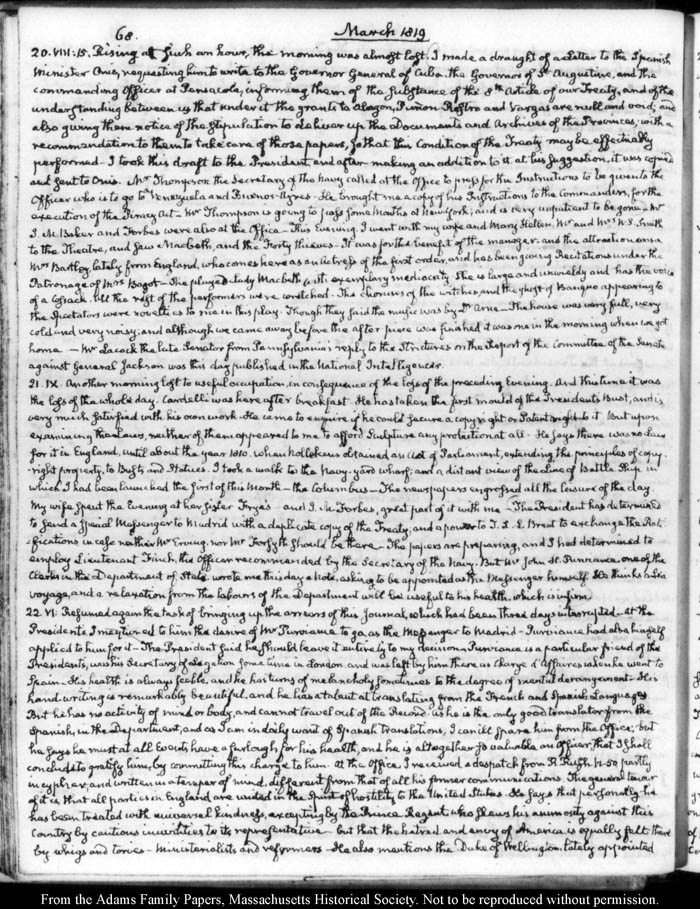 68. March 1819
20. VIII:15. Rising at such an hour, the morning was almost lost. I made a draught of a Letter to the Spanish
Minister Onis, requesting him to write to the Governor General of Cuba, the Governor of St. Augustine, and the
commanding Officer at Pensacola, informing them of the substance of the 8th. Article of our Treaty, and of the
understanding between us that under it the grants to Alagon, Puñon Rostro and Vargas are null and void; and
also giving them notice of the stipulation to deliver up the Documents and Archives of the Provinces; with a
recommendation to them to take care of those papers, so that this Condition of the Treaty may be effectually
performed. I took this draft to the President, and after making an addition to it at his suggestion, it was copied
and sent to Onis. Mr. Thompson the Secretary of the Navy called at the Office to press for the Instructions to be given to the
Officer who is to go to Venezuela and Buenos-Ayres. He brought me a copy of his Instructions to the Commanders, for the
execution of the Piracy Act. Mr. Thompson is going to pass some Months at New York; and is very impatient to be gone. Mr.
J. M. Baker and Forbes were also at the Office. This Evening I went with my wife and Mary Hellen, Mr. and Mrs. W. S. Smith
to the Theatre, and saw Macbeth, and the Forty thieves. It was for the benefit of the manager: and the attraction was a
Mrs. Bartley, lately from England, who comes here as an Actress of the first order, and has been giving Recitations under the
Patronage of Mrs. Bagot. She played Lady Macbeth with exemplary mediocrity. She is large and unwieldy and has the voice
of a Cossack. All the rest of the performers were wretched. The chorusses of the witches, and the ghost of Banquo appearing to
the Spectators were novelties to me in this play. Though they said the music was by Dr. Arne. The house was very full, very
cold and very noisy; and although we came away before the after piece was finished it was one in the morning when we got
home. — Mr. Lacock the late Senator from Pennsylvania's reply to the Strictures on the Report of the Committee of the Senate
against General Jackson was this day published in the National Intelligencer.
21. IX. Another morning lost to useful occupation, in consequence of the loss of the preceding Evening. And this time it was
the loss of the whole day. Cardelli was here after breakfast. He has taken the first mould of the President's Bust, and is
very much satisfied with his own work. He came to enquire if he could secure a copy right or Patent right to it. But upon
examining the Laws, neither of them appeared to me to afford Sculpture any protection at all. He says there was no Law
for it in England, until about the year 1810. when Nollekens obtained an Act of Parliament, extending the principles of copy
right property, to Busts and Statues. I took a walk to the Navy-yard wharf; and a distant view of the Line of Battle Ship in
which I had been launched the first of this Month — the Columbus — The newspapers engrossed all the leisure of the day.
My wife spent the evening at her sister Frye's — and J. M. Forbes, great part of it with me — The President has determined
to send a special Messenger to Madrid with a duplicate copy of the Treaty, and a power to T. L. L. Brent to exchange the Rati-
fications in case neither Mr. Erving, nor Mr. Forsyth should be there. The papers are preparing, and I had determined to
employ Lieutenant Finch, the Officer recommended by the Secretary of the Navy. But Mr. John H. Purviance, one of the
Clerks in the Department of State wrote me this day a Note, asking to be appointed as the Messenger himself. He thinks a Sea
voyage, and a relaxation from the labours of the Department will be useful to his health, which is infirm.
22. VI. Resumed again the task of bringing up the arrears of this Journal, which had been three days interrupted. At the
President's, I mentioned to him the desire of Mr. Purviance to go, as the Messenger to Madrid. Purviance had also himself
applied to him for it — The President said he should leave it entirely to my decision. Purviance is a particular friend of the
President's, was his Secretary of Legation some time in London, and was left by him there as Chargé d'Affaires when he went to
Spain. His health is always feeble, and he has turns of melancholy sometimes to the degree of mental derangement. His
hand writing is remarkably beautiful, and he has a talent at translating from the French and Spanish Languages
But he has no activity of mind or body, and cannot travel out of the Record. As he is the only good translator from the
Spanish, in the Department, and as I am in daily want of Spanish translations, I can ill spare him from the Office; but
he says he must at all events have a furlough, for his health, and he is altogether so valuable an Officer, that I shall
conclude to gratify him, by committing this charge to him. At the Office, I received a despatch from R. Rush, N. 50 partly
in cypher, and written in a temper of mind, different from that of all his former communications. The general tenor
of it is, that all parties in England are united in the Spirit of hostility to the United States. He says that personally he
has been treated with universal kindness, excepting by the Prince Regent, who shews his animosity against this
Country by cautious incivilities to its representative — but that the hatred and envy of America is equally felt there
by whigs and tories — Ministerialists and reformers — He also mentions the Duke of Wellington, lately appointed
From the Adams Family Papers, Massachusetts Historical Society. Not to be reproduced without permission.